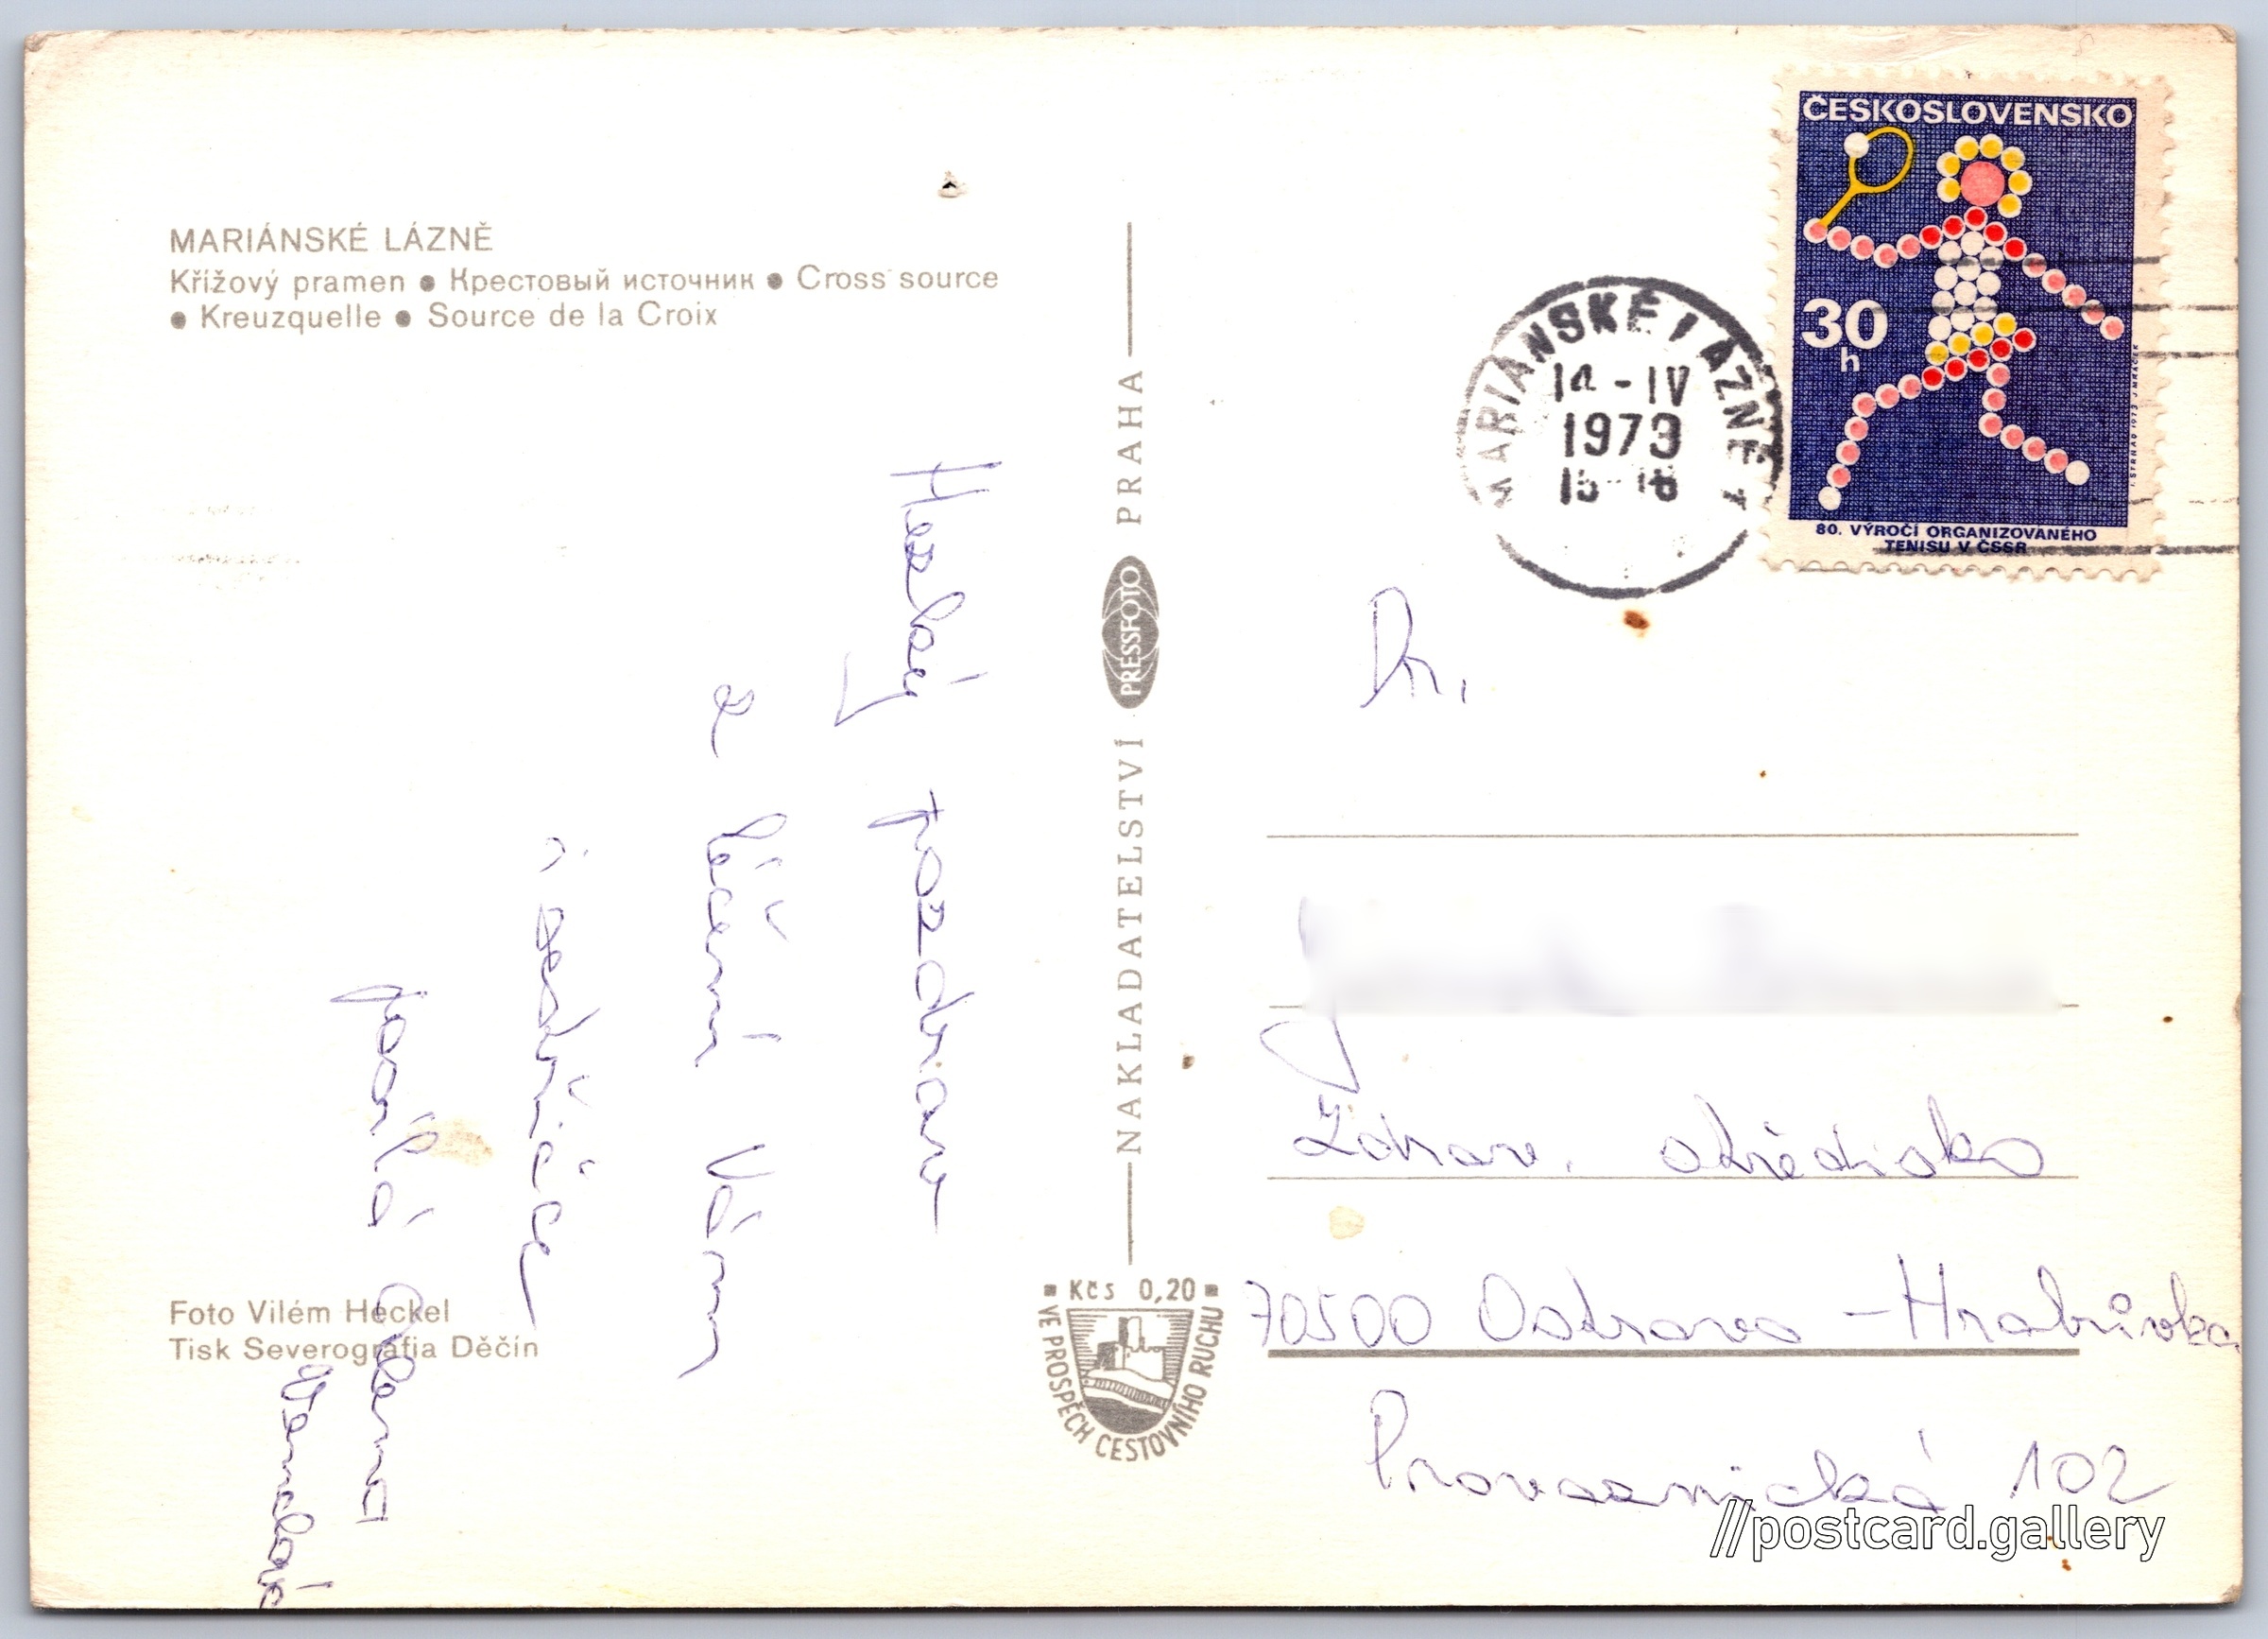 MARIÁNSKÉ LÁZNĚ
Křížový pramen ● Крестовый источник ● Cross source
● Kreuzquelle ● Source de la Croix
Hezký pozdrav
z léčení Vám
i sestřičce
posílá Alena
Foto Vilém Heckel
Tisk Severografia Děčín
NAKLADATELSTVÍ PRESSFOTO PRAHA
Kčs 0,20
VE PROSPĚCH CESTOVNÍHO RUCHU
ČESKOSLOVENSKO
30
h
80. VÝROČÍ ORGANIZOVANÉHO
TENISU V ČSSR
I. STRNAD 1973 J. MRÁČEK
MARIÁNSKÉ LÁZNĚ 1
14 - IV
1973
15-16
Dr.
Zdrav. středisko
70500 Ostrava - Hrabůvka
Provaznická 102
//postcard.gallery